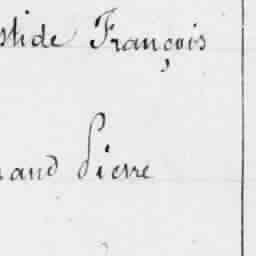 stide François
and Pierre